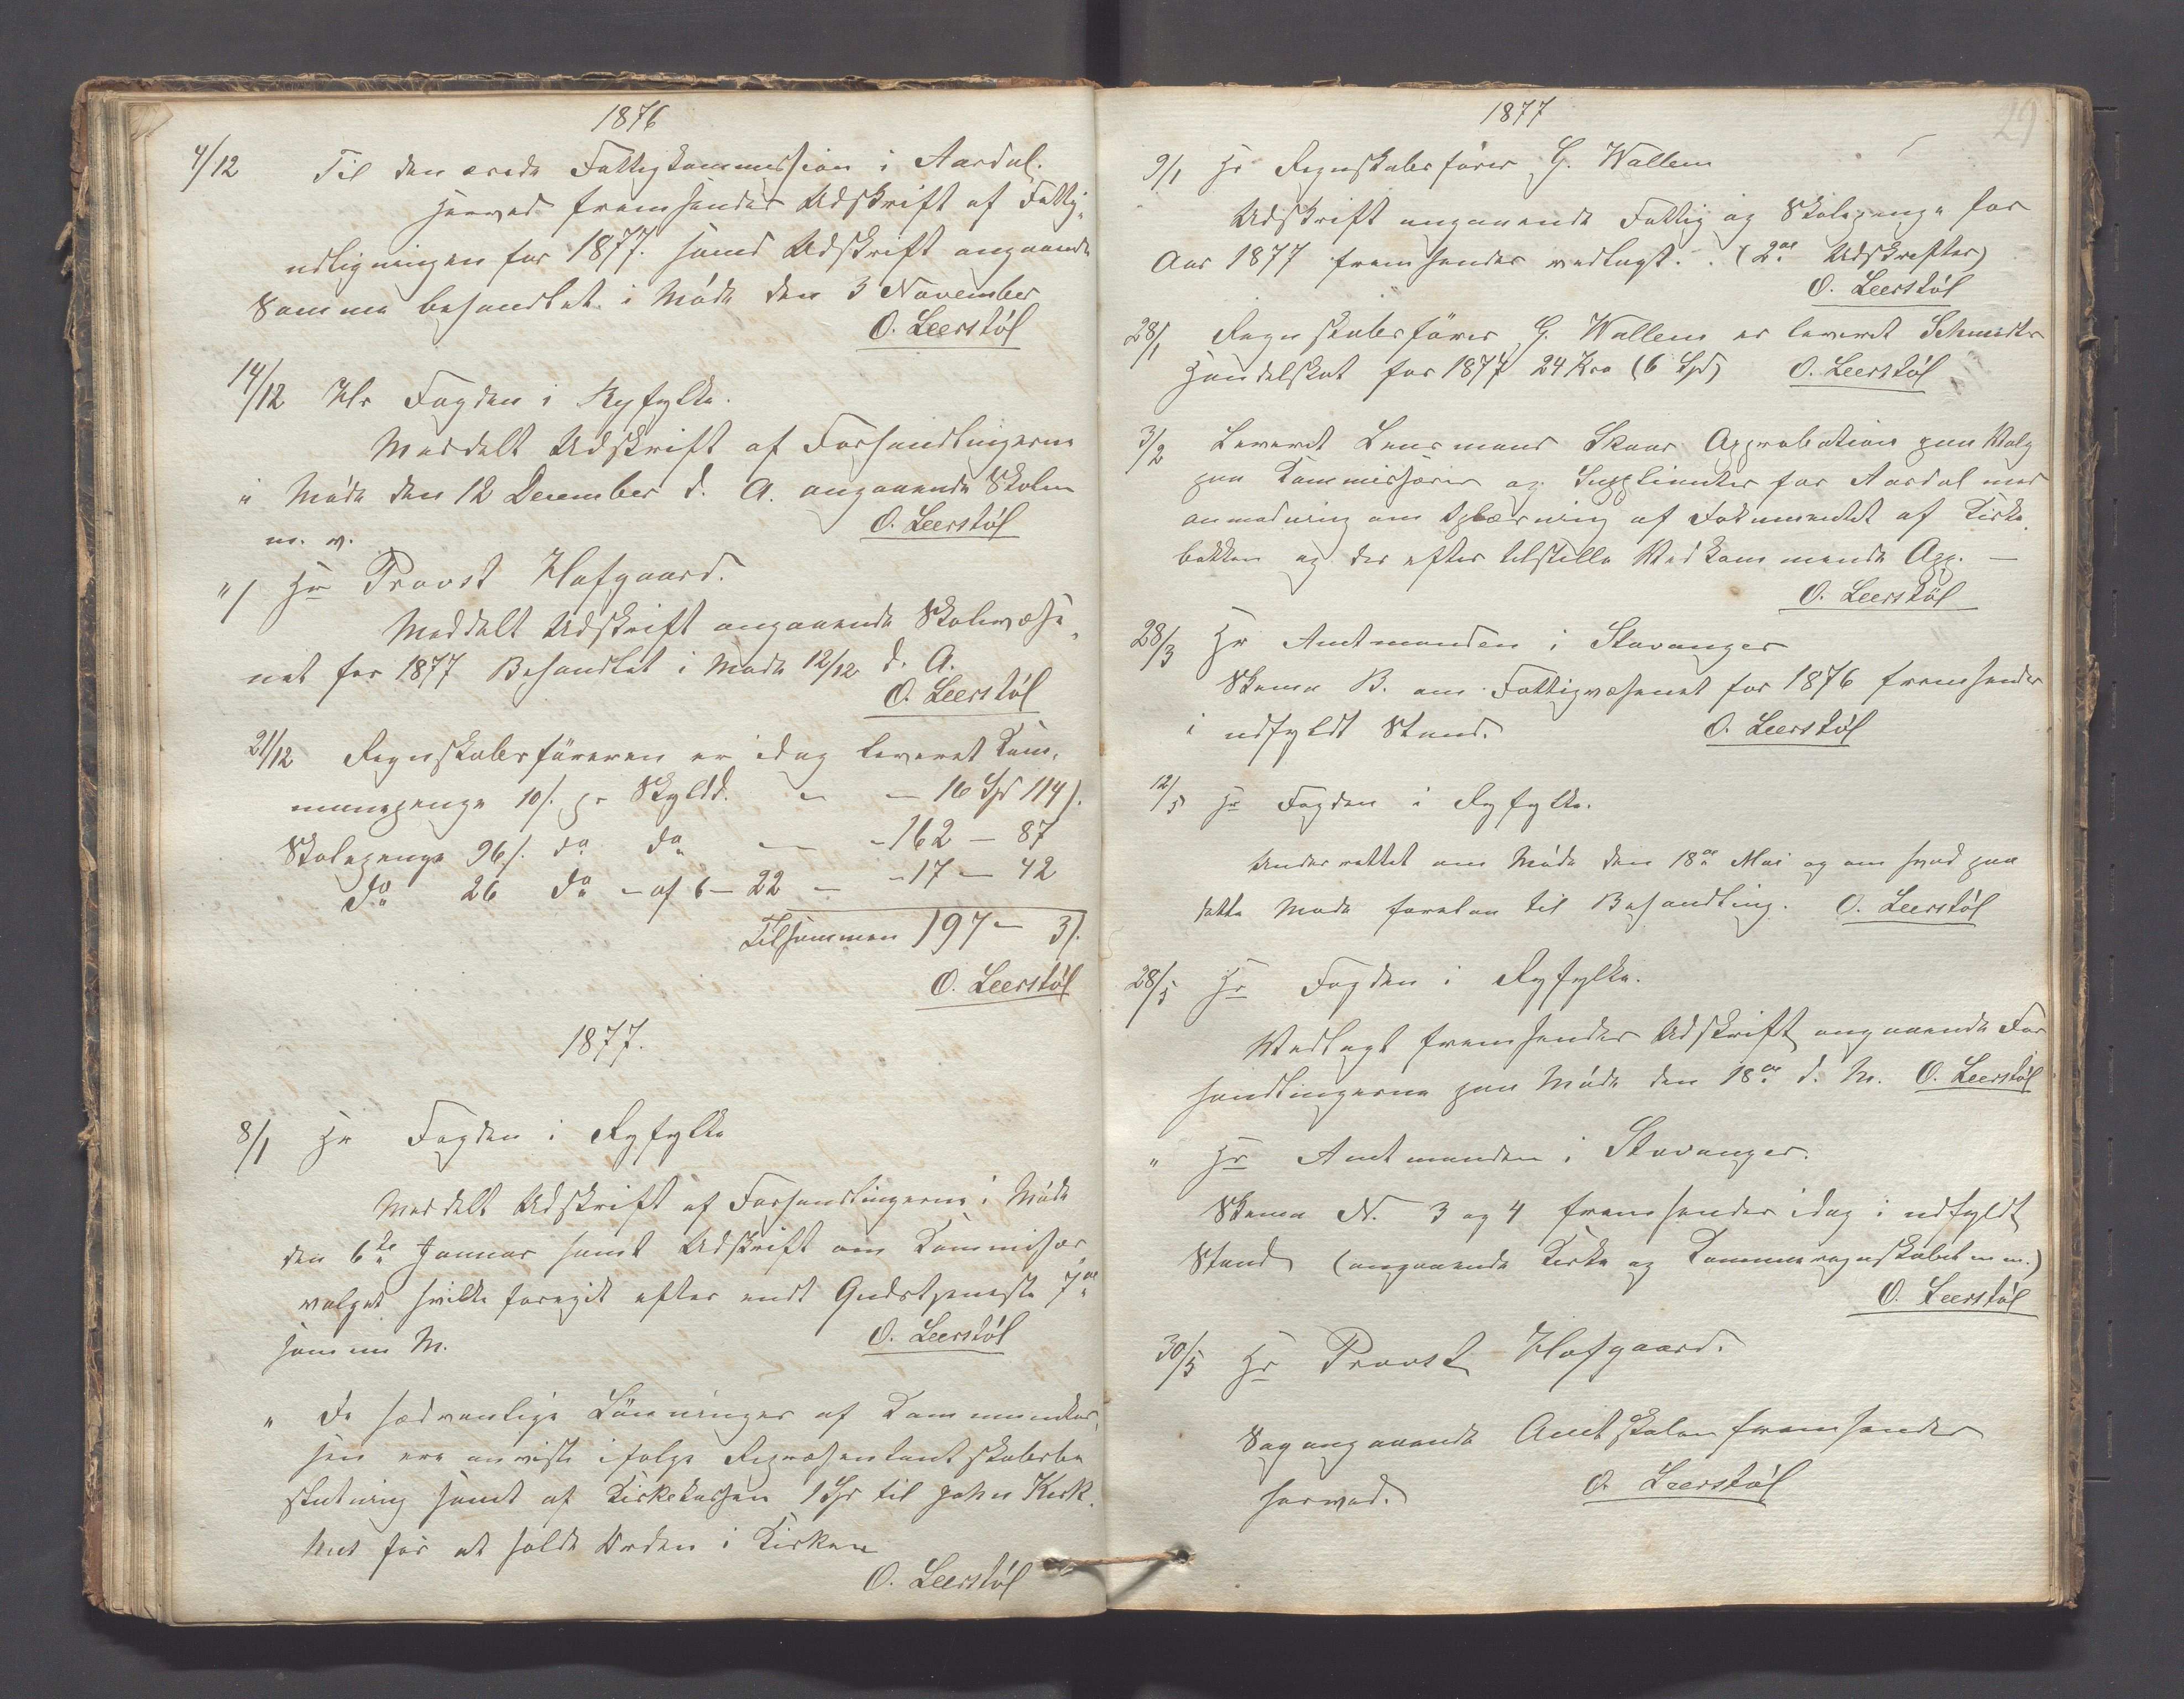 1876
4/12 Til den ærede Fattigkommission i Aardal.
Herved fremsendes Udskrift af Fattig-
udligningen for 1877. samt Udskrift angaaende
Samme behandlet i Møde den 3 November
O. Leerstøl
14/12 Hr Fogden i Ryfylke.
Meddelt Udskrift af Forhandlingerne
i Møde den 12 December d. A. angaaende Skolen
m. v. O. Leerstøl
"/ Hr Provst Hofgaard.
Meddelt Udskrift angaaende Skolevæse-
net for 1877 Behandlet i Møde 12/12 d. A.
O. Leerstøl
21/12 Regnskabsføreren er idag leveret Kom-
munepenge 10 /. pr Skyldd. — — 16 Spd 114 /.
Skolepenge 96 /. do do — - 162 — 87
do 26 do - af 6 - 22 — - 17 — 42
Tilsammen 197 — 3 /.
O. Leerstøl
1877.
8/1 Hr Fogden i Ryfylke
Meddelt Udskrift af Forhandlingerne i Møde
den 6te Januar samt Udskrift om Kommisær
valget hvilke foregik efter endt Gudstjeneste 7de
samme M. O. Leerstøl
" De sædvanlige Lønninger af Kommunekas-
sen ere anviste ifølge Repræsentantskabsbe
slutning samt af Kirkekassen 1 Spd til John Kirk-
hus for at holde Orden i Kirken
O. Leerstøl
29
1877
9/1 Hr Regnskabsfører G. Wallem
Udskrift angaaende Fattig og Skolepenge for
Aar 1877 fremsendes vedlagt. (2de Udskrifter)
O. Leerstøl
28/1 Regnskabsfører G. Wallem er leveret Schmidts
Handelskat for 1877 24 Kro (6 Spd) O. Leerstøl
3/2 Leveret Lensmand Skaar Approbation paa Valg
paa Kommissærer og Supplianter for Aardal med
anmodning om Oplæsning af Dokumentet af Kirke
bakken og der efter tilstille Vedkommende App. —
O. Leerstøl
28/3 Hr Amtmanden i Stavanger
Skema B. om Fattigvæsenet for 1876 fremsendes
i udfyldt Stand. O. Leerstøl
12/5 Hr Fogden i Ryfylke.
Underrettet om Møde den 18de Mai og om hvad paa
dette Møde foretas til Behandling. O. Leerstøl
28/5 Hr Fogden i Ryfylke.
Vedlagt fremsendes Udskrift angaaende For
handlingerne paa Møde den 18de d. M. O. Leerstøl
" Hr Amtmanden i Stavanger.
Skema N. 3 og 4 fremsendes idag i udfyldt
Stand (angaaende Kirke og Kommuneregnskabet m m.)
O. Leerstøl
30/5 Hr Provst Hofgaard.
Sag angaaende Amtskolen fremsendes
herved. O. Leerstøl